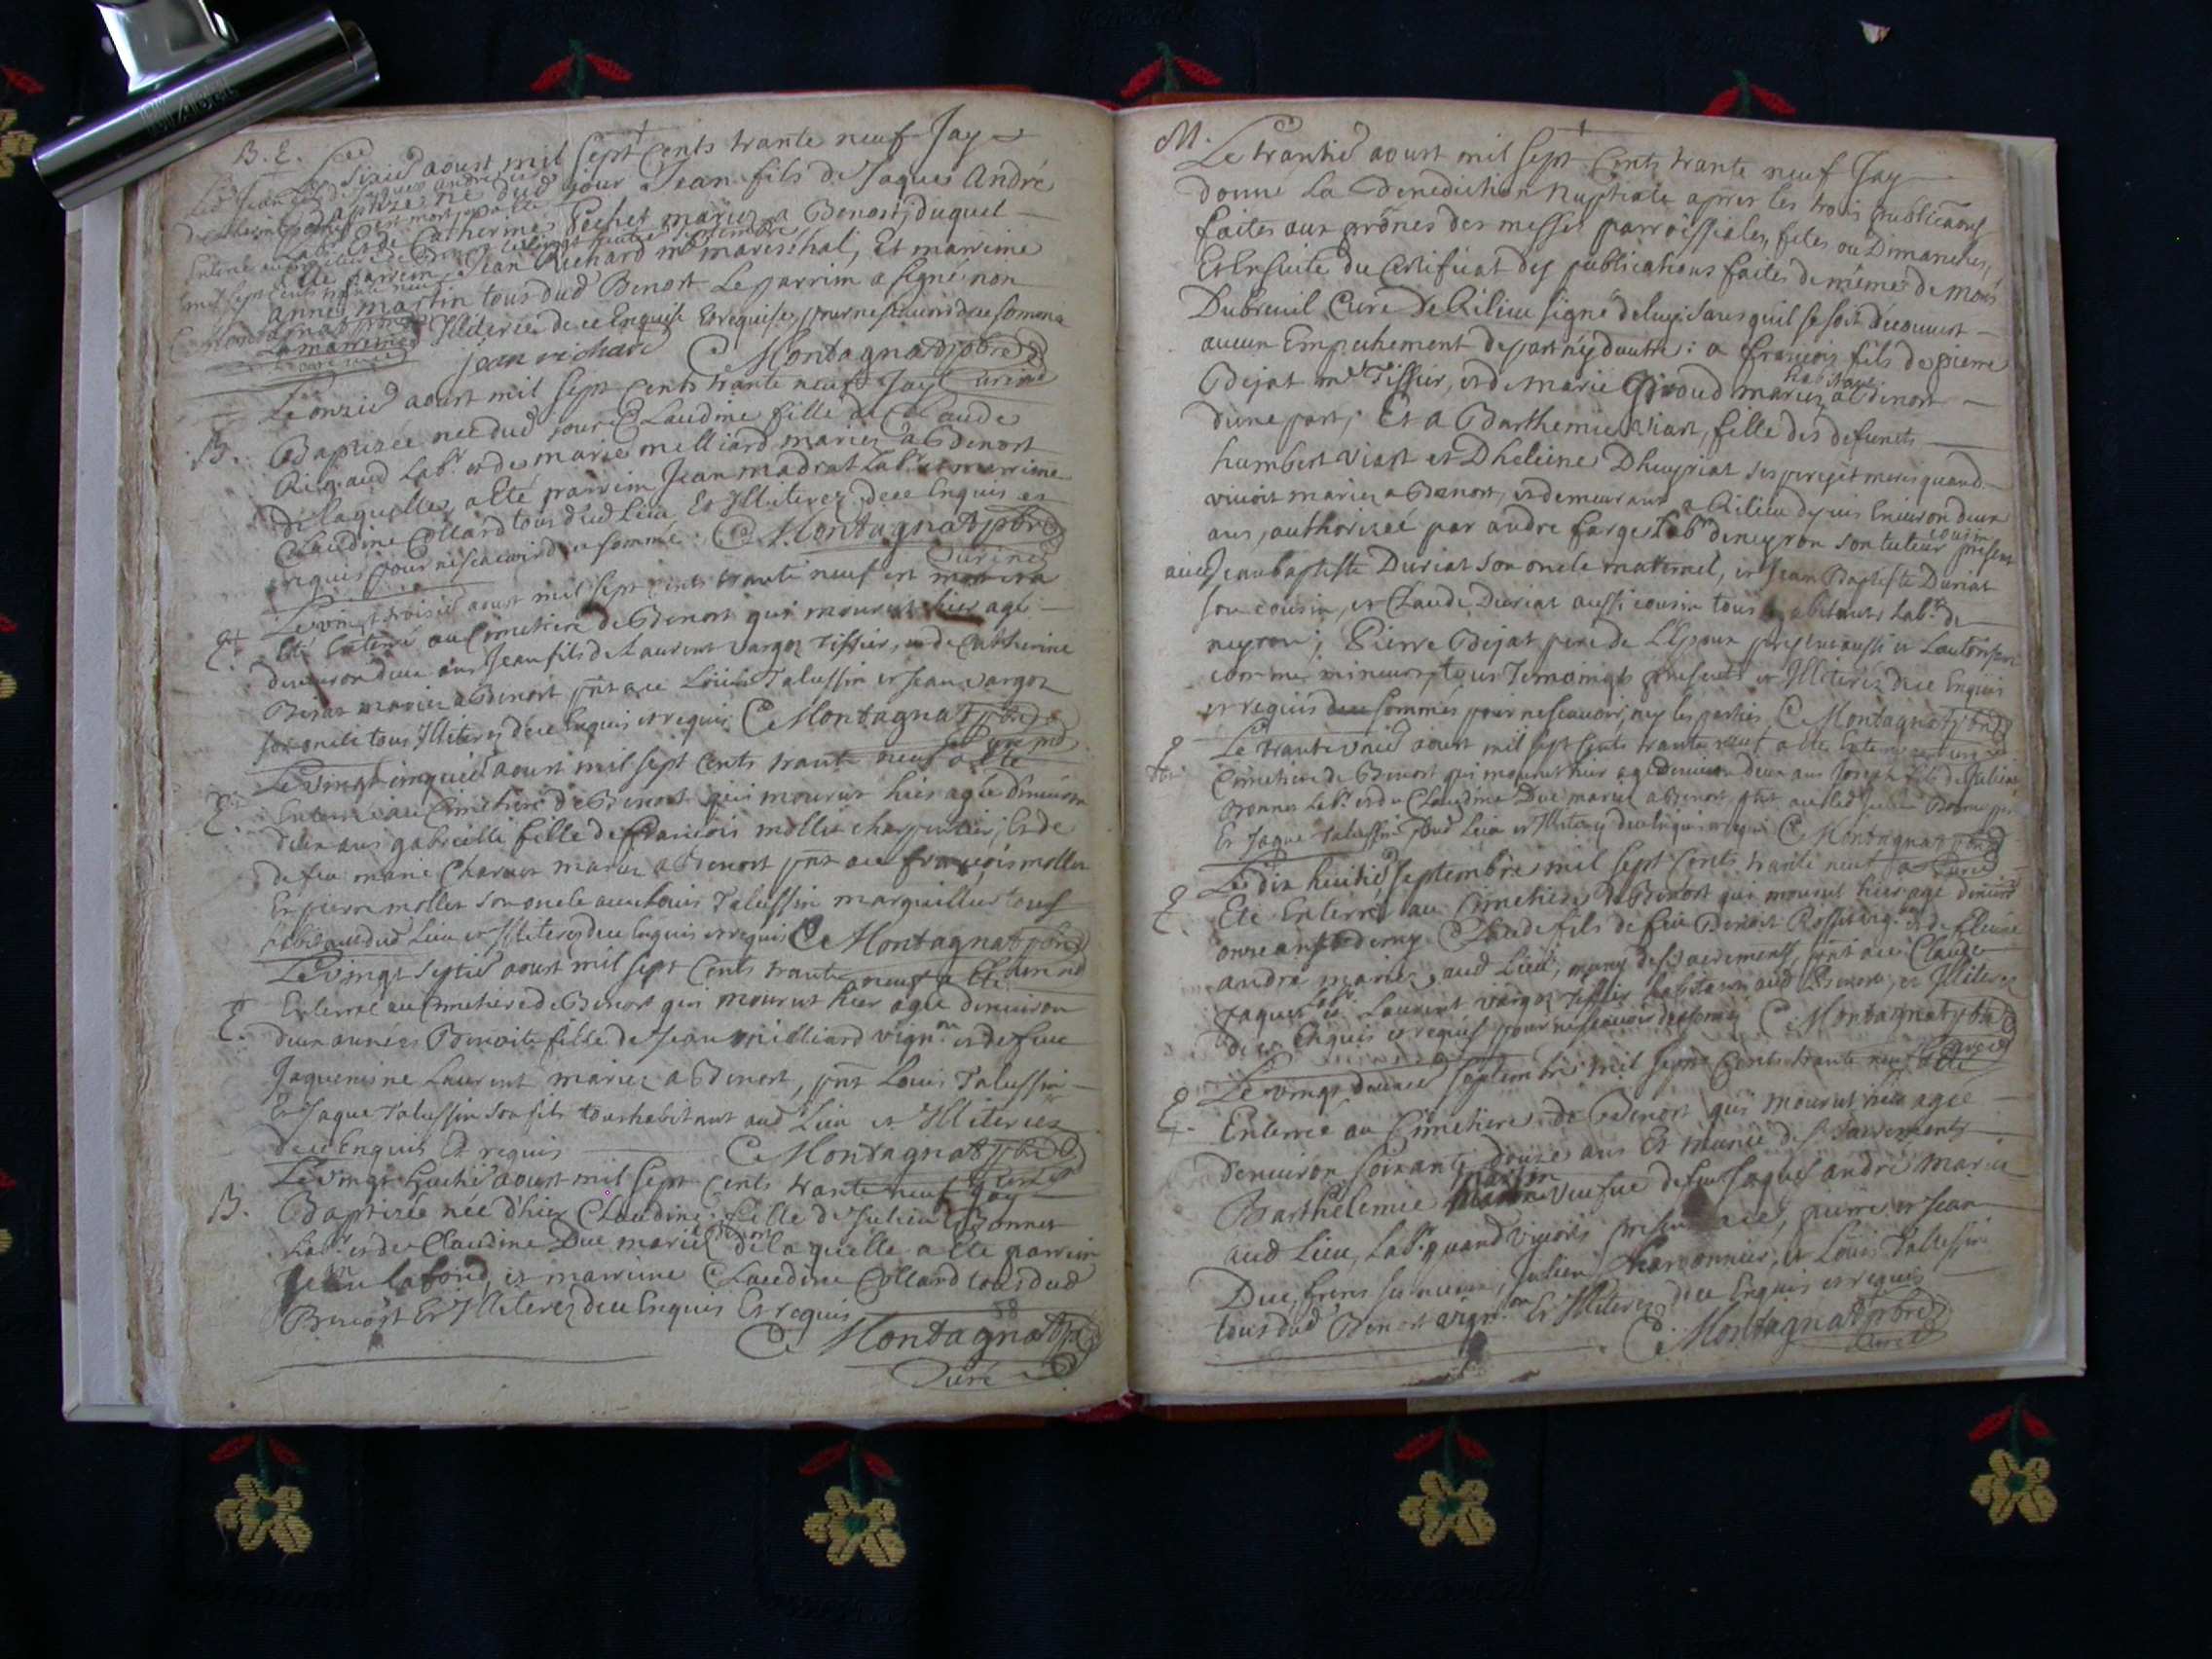 B. E.
Le sixie aoust mil sept cents trante neuf Jay
baptizé né dud jour Jean fils de Jaque André
Lab. et de Catherine Pechet mariez a Benost, duquel
a été parrein Jean Richard me mareschal, Et marrine
anne martin tous dud Benost Le parrim a signé non
La marrine Illiterée de ce Enquise Et requise pour ne scavoir de ce somme
jean richard C Montagnat pbre
curé
Le onzie aoust mil sept cents trante neuf Jay
B. Baptizée née dud jour Claudine fille de Claude
Rigaud Labr et de marie milliard mariez a Benost
De laquelle a été parrein Jean madrat Labr et marrine
Claudine Collard tous dud Lieu Et Illiterez de ce Enquis et
requis pour ne scavoir de ce sommé C Montagnat pbre
curé
Le vingt troisie aoust mil sept cents trante neuf
E. Eté Enterré au Cimetiere de Benost qui mourut hier agé
denviron deux ans Jean fils de Laurent vargoz Tissier, et de Catherine
mariez a Benost pnt avec Louis Talussin et Jean vargoz
son oncle tous Illiterez de ce Enquis et requis C Montagnat pbre
curé
Le vingt cinquie aoust mil sept cents trante neuf a été
E. Enterrée au Cimetiere de Benost qui mourut hier agée denviron
deux ans gabrielle fille de francois mollet charpentier, Et de
de feu marie Charvet mariez a Benost pnt avec francois mollet
Et pierre mollet son oncle avec Louis Talussin marguillier tous
dud Lieu et Illiterez de ce Enquis et requis C Montagnat pbre
curé
Le vingt septie aoust mil sept cents trante neuf a été
E. Enterrée au Cimetiere de Benost qui mourut hier agée denviron
deux années Benoite fille de Jean milliard vign.on et de feue
Jaquemine Laurent mariez a Benost, pnt Louis Talussin
Et Jaque Talussin son fils tous habitant aud Lieu et Illiterez
de ce Enquis Et requis C Montagnat pbre
curé
Le vingt huitie aoust mil sept cents trante neuf Jay
B. Baptizée née d'hier Claudine fille de Julien Bonnet
Labr et de Claudine Duc mariez a Benost de laquelle a été parrein
Jean Lafond, et marrine Claudine Collard tous dud
Benost Et Illiterez de ce Enquis Et requis
58
C Montagnat pbre
Curé
M. Le trantie aoust mil sept cents trante neuf Jay
donné La Benediction Nuptiale apres les trois publicaons
faites aux prônes des messes parroissiales, fetes ou Dimanches,
Et Ensuite du Certificat des publications faites de même de monsr
Dubreuil Curé de Rilieu signé de luy, sans quil se soit decouvert
aucun Empechement de part ny dautre: a francois fils de pierre
Bejat me Tissier, et de marie Giroud mariez habitans a Benost
dune part; Et a Barthemie Viart, fille des defuncts
humbert Viart et Dheleine Dheyriat ses pere et mere quand
vivoit mariez a Benost, et demeurant a Rilieu depuis Environ deux
ans, authorizeé par andre farge Labr de neyron son tuteur cousin present
avec Jean baptiste Duriat son oncle maternel, et Jean Baptiste Duriat
son cousin, et Claude Duriat aussi cousin tous habitants Labr de
neyron; Pierre Bejat pere de L'Epoux present aussi et Lauthorisant
comme mineur, tous Temoingts presents et Illiterez de ce Enquis
et requis de ce sommés pour ne scavoir, ny les parties C Montagnat pbre
curé
Le trante unie aoust mil sept cents trante neuf a été Enterré
E. Cimetiere de Benost qui mourut hier agé denviron deux ans Joseph fils de Julien
Bonnet Labr et de Claudine Duc mariez a Benost pnt avec led Julien Bonnet
Et Jaque Talussin dud Lieu et Illiterez de ce Enquis et requis C Montagnat pbre
Curé
Le dix huitie septembre mil sept cents trante neuf a
E. Eté Enterré au Cimetiere de Benost qui mourut hier agé denviron
onze ans et demy Claude fils de feu Benoit vign.on et de
andré mariez aud Lieu, muny des sacrements, pnt avec Claude
Jaquet Labr et Laurent vargoz Tissier habitants aud Benost, et Illiterez
de ce Enquis et requis pour ne scavoir de ce sommez C Montagnat pbre
Curé
Le vingt deuxie septembre mil sept cents trante neuf a été
E. Enterrée au Cimetiere de Benost qui mourut hier agée
denviron soixante douze ans Et munie des sacrements
Barthelemie martin veufve de feu Jaques andré mariez
aud Lieu, Labr quand vivoit presents avec pierre et Jean
Duc, freres ses neveux, Julien Charbonnier, et Louis Talussin
tous dud Benost vign.on Et Illiterez de ce Enquis et requis
C. Montagnat pbre
Curé